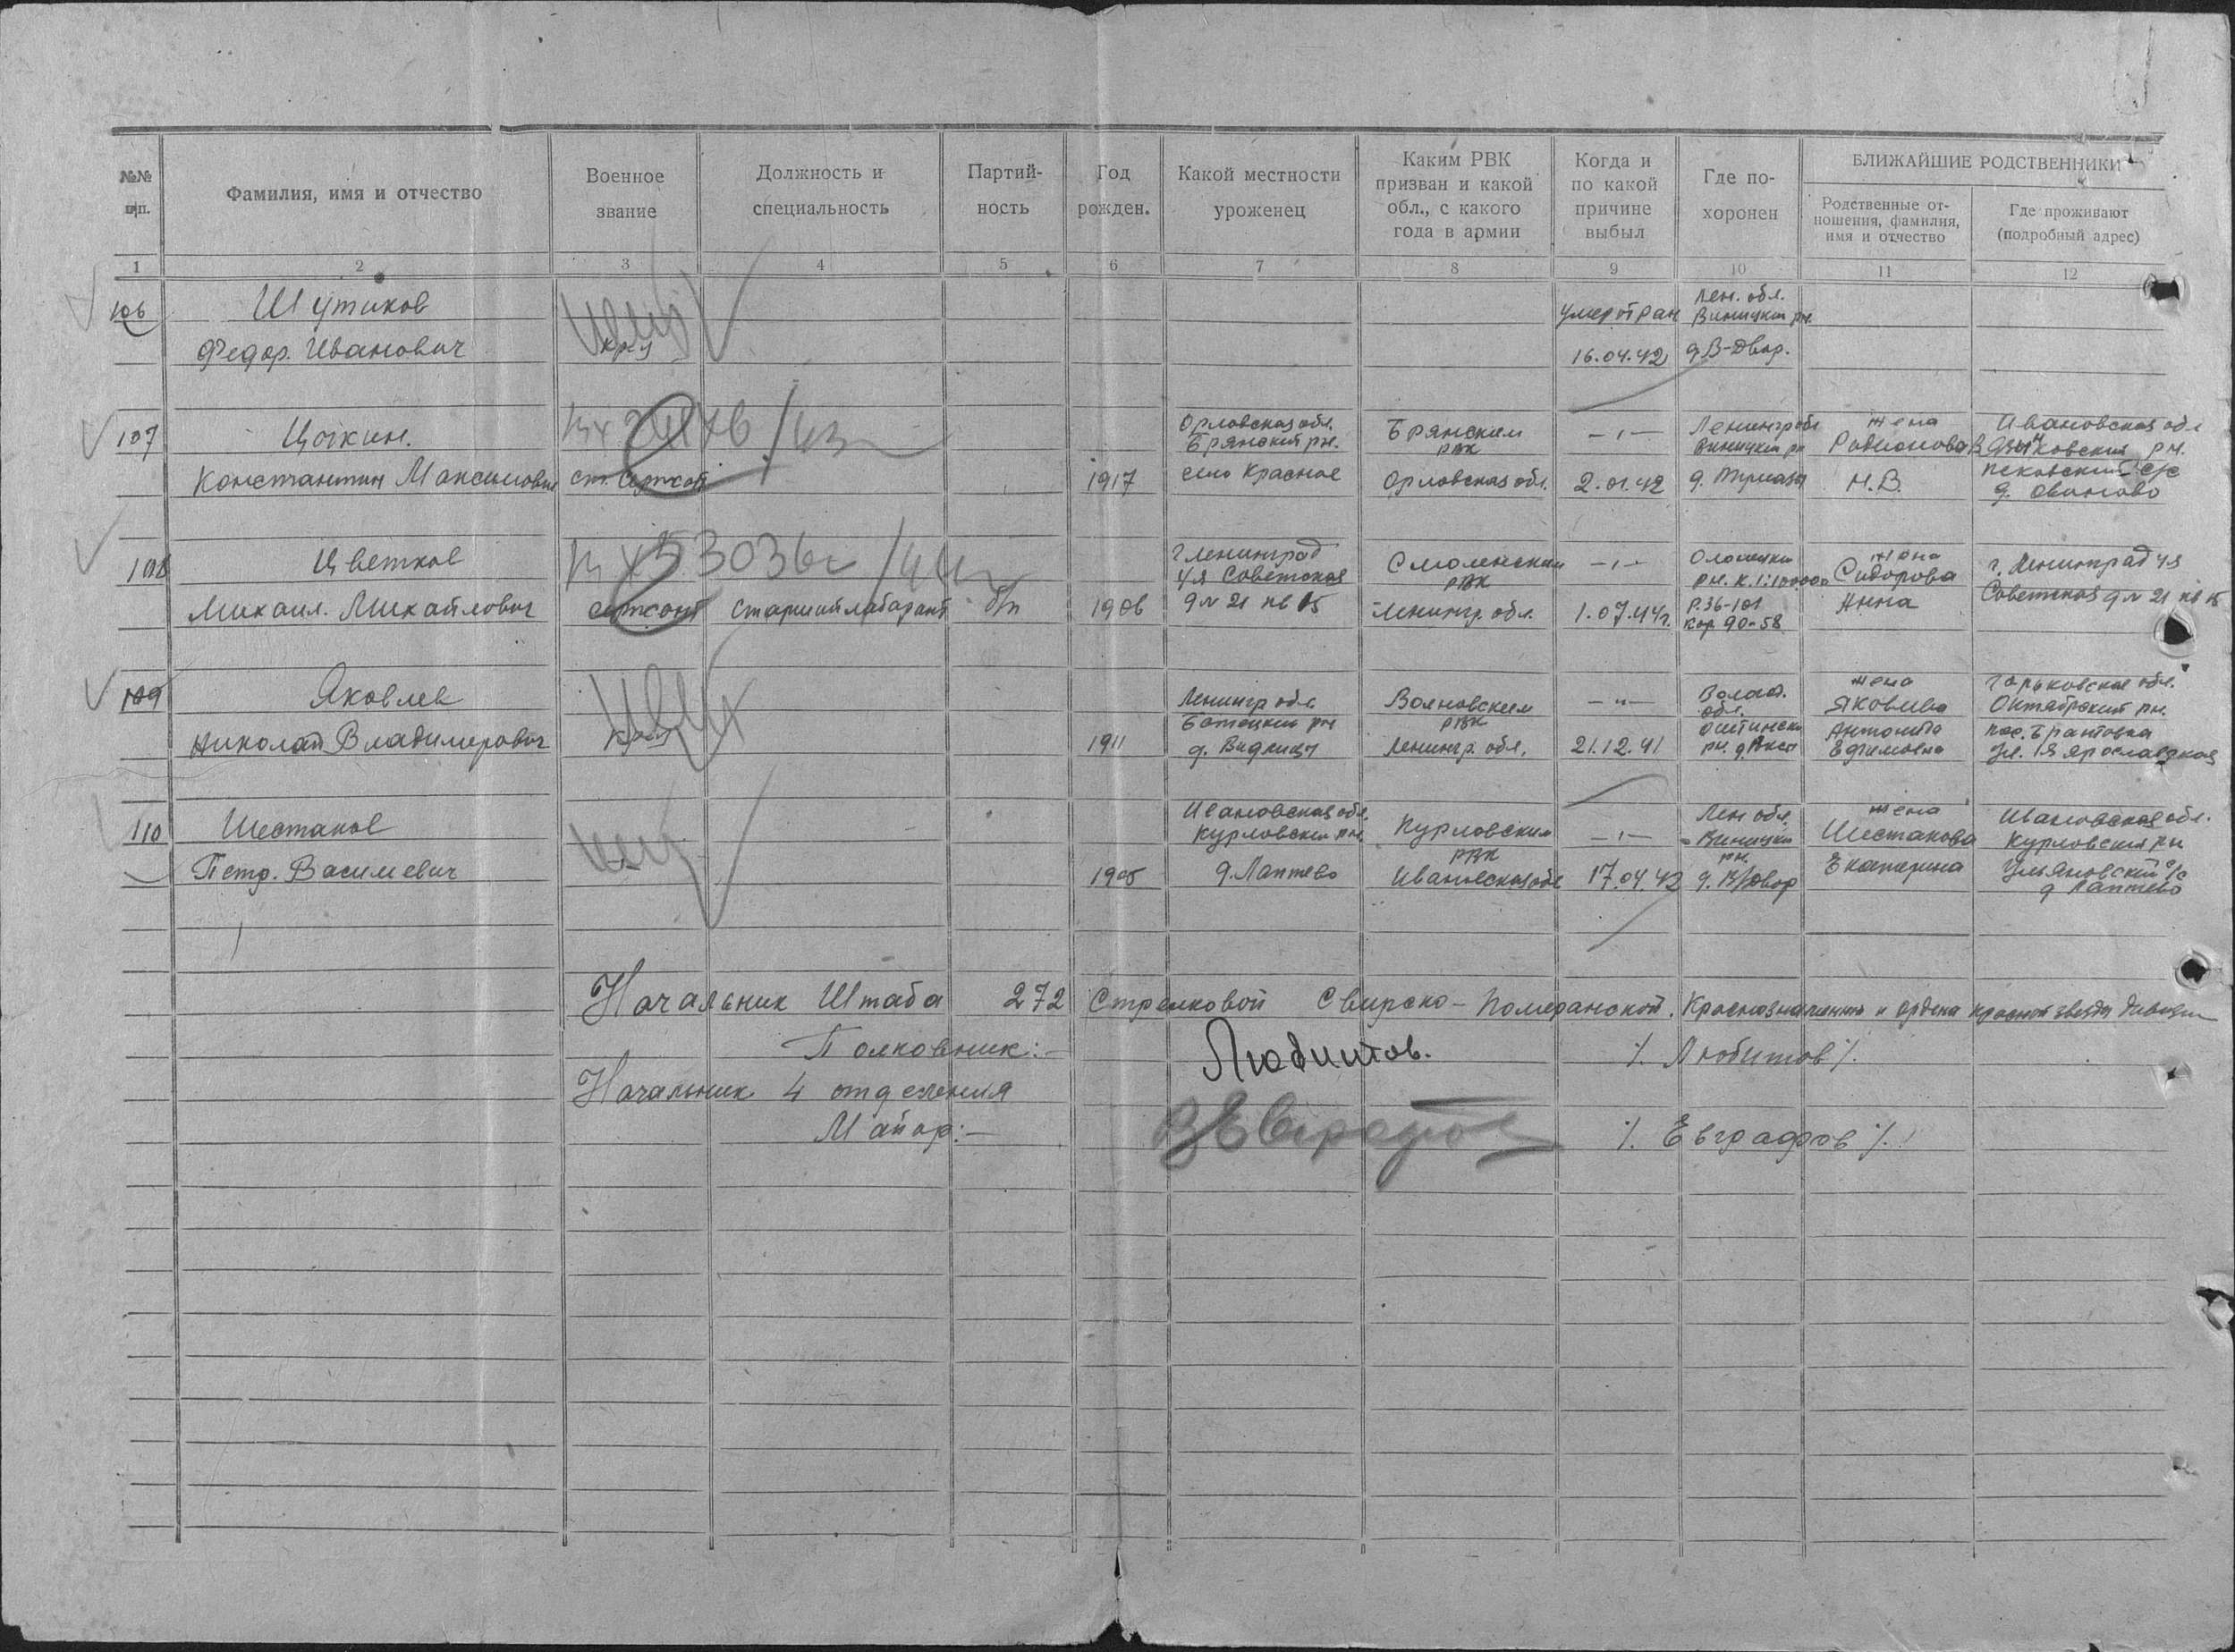 №№ п/п.
Фамилия, имя и отчество
Военное звание
Должность и специальность
Партийность
Год рожден.
Какой местности уроженец
Каким РВК призван и какой обл., с какого года в армии
Когда и по какой причине выбыл
Где похоронен
БЛИЖАЙШИЕ РОДСТВЕННИКИ
Родственные отношения, фамилия, имя и отчество
Где проживают (подробный адрес)
1 2 3 4 5 6 7 8 9 10 11 12
106 Шутиков
Федор. Иванович
кр-ц
умер от ран
16.04.42
Лен. обл.
Виницкий рн.
д. В-Двор.
107 Цыкин.
Константин Максимович
ст. сержант
1917
Орловская обл.
Брянский рн.
село Красное
Брянским
РВК
Орловская обл.
—"—
2.01.42
Ленингр обл
Виницкий рн
жена
Родионова
Н.В.
Ивановская обл
рн.
с/с
108 Цветков
Михаил. Михайлович
сержант
старший лаборант
б/п
1906
г Ленинград
4я Советская
д № 21 кв 15
Смоленским
РВК
Ленингр. обл.
—"—
1.07.44г.
Олонецкий
рн. к. 1:100000
Р.36-101
кор 90-58
жена
Сидорова
Анна
г. Ленинград 4я
Советская д № 21 кв 15
109 Яковлев
Николай Владимирович
1911
Ленингр обл.
Батецкий рн
д. Видлицы
РВК
Ленингр. обл.
—"—
21.12.41
Волог.
обл.
рн.
жена
Яковлева
Антонида
Ефимовна
Горьковская обл.
Октябрский рн.
ул. 1я Ярославская
110 Шестаков
Петр. Василевич
1905
Ивановская обл.
Курловский рн.
д. Лаптево
Курловским
РВК
Ивановская обл
—"—
17.04.42
Лен обл.
Виницкий
рн.
д. В/Двор
жена
Шестакова
Екатерина
Ивановская обл.
Курловский рн
Ульяновский с/с
д Лаптево
Начальник Штаба 272 Стрелковой Свирско-Померанской. Краснознаменной и ордена красной звезды дивизии
Полковник:-
Любимтов.
/. Любитов /.
Начальник 4 отделения
Майор:-
/. Евграфов /.